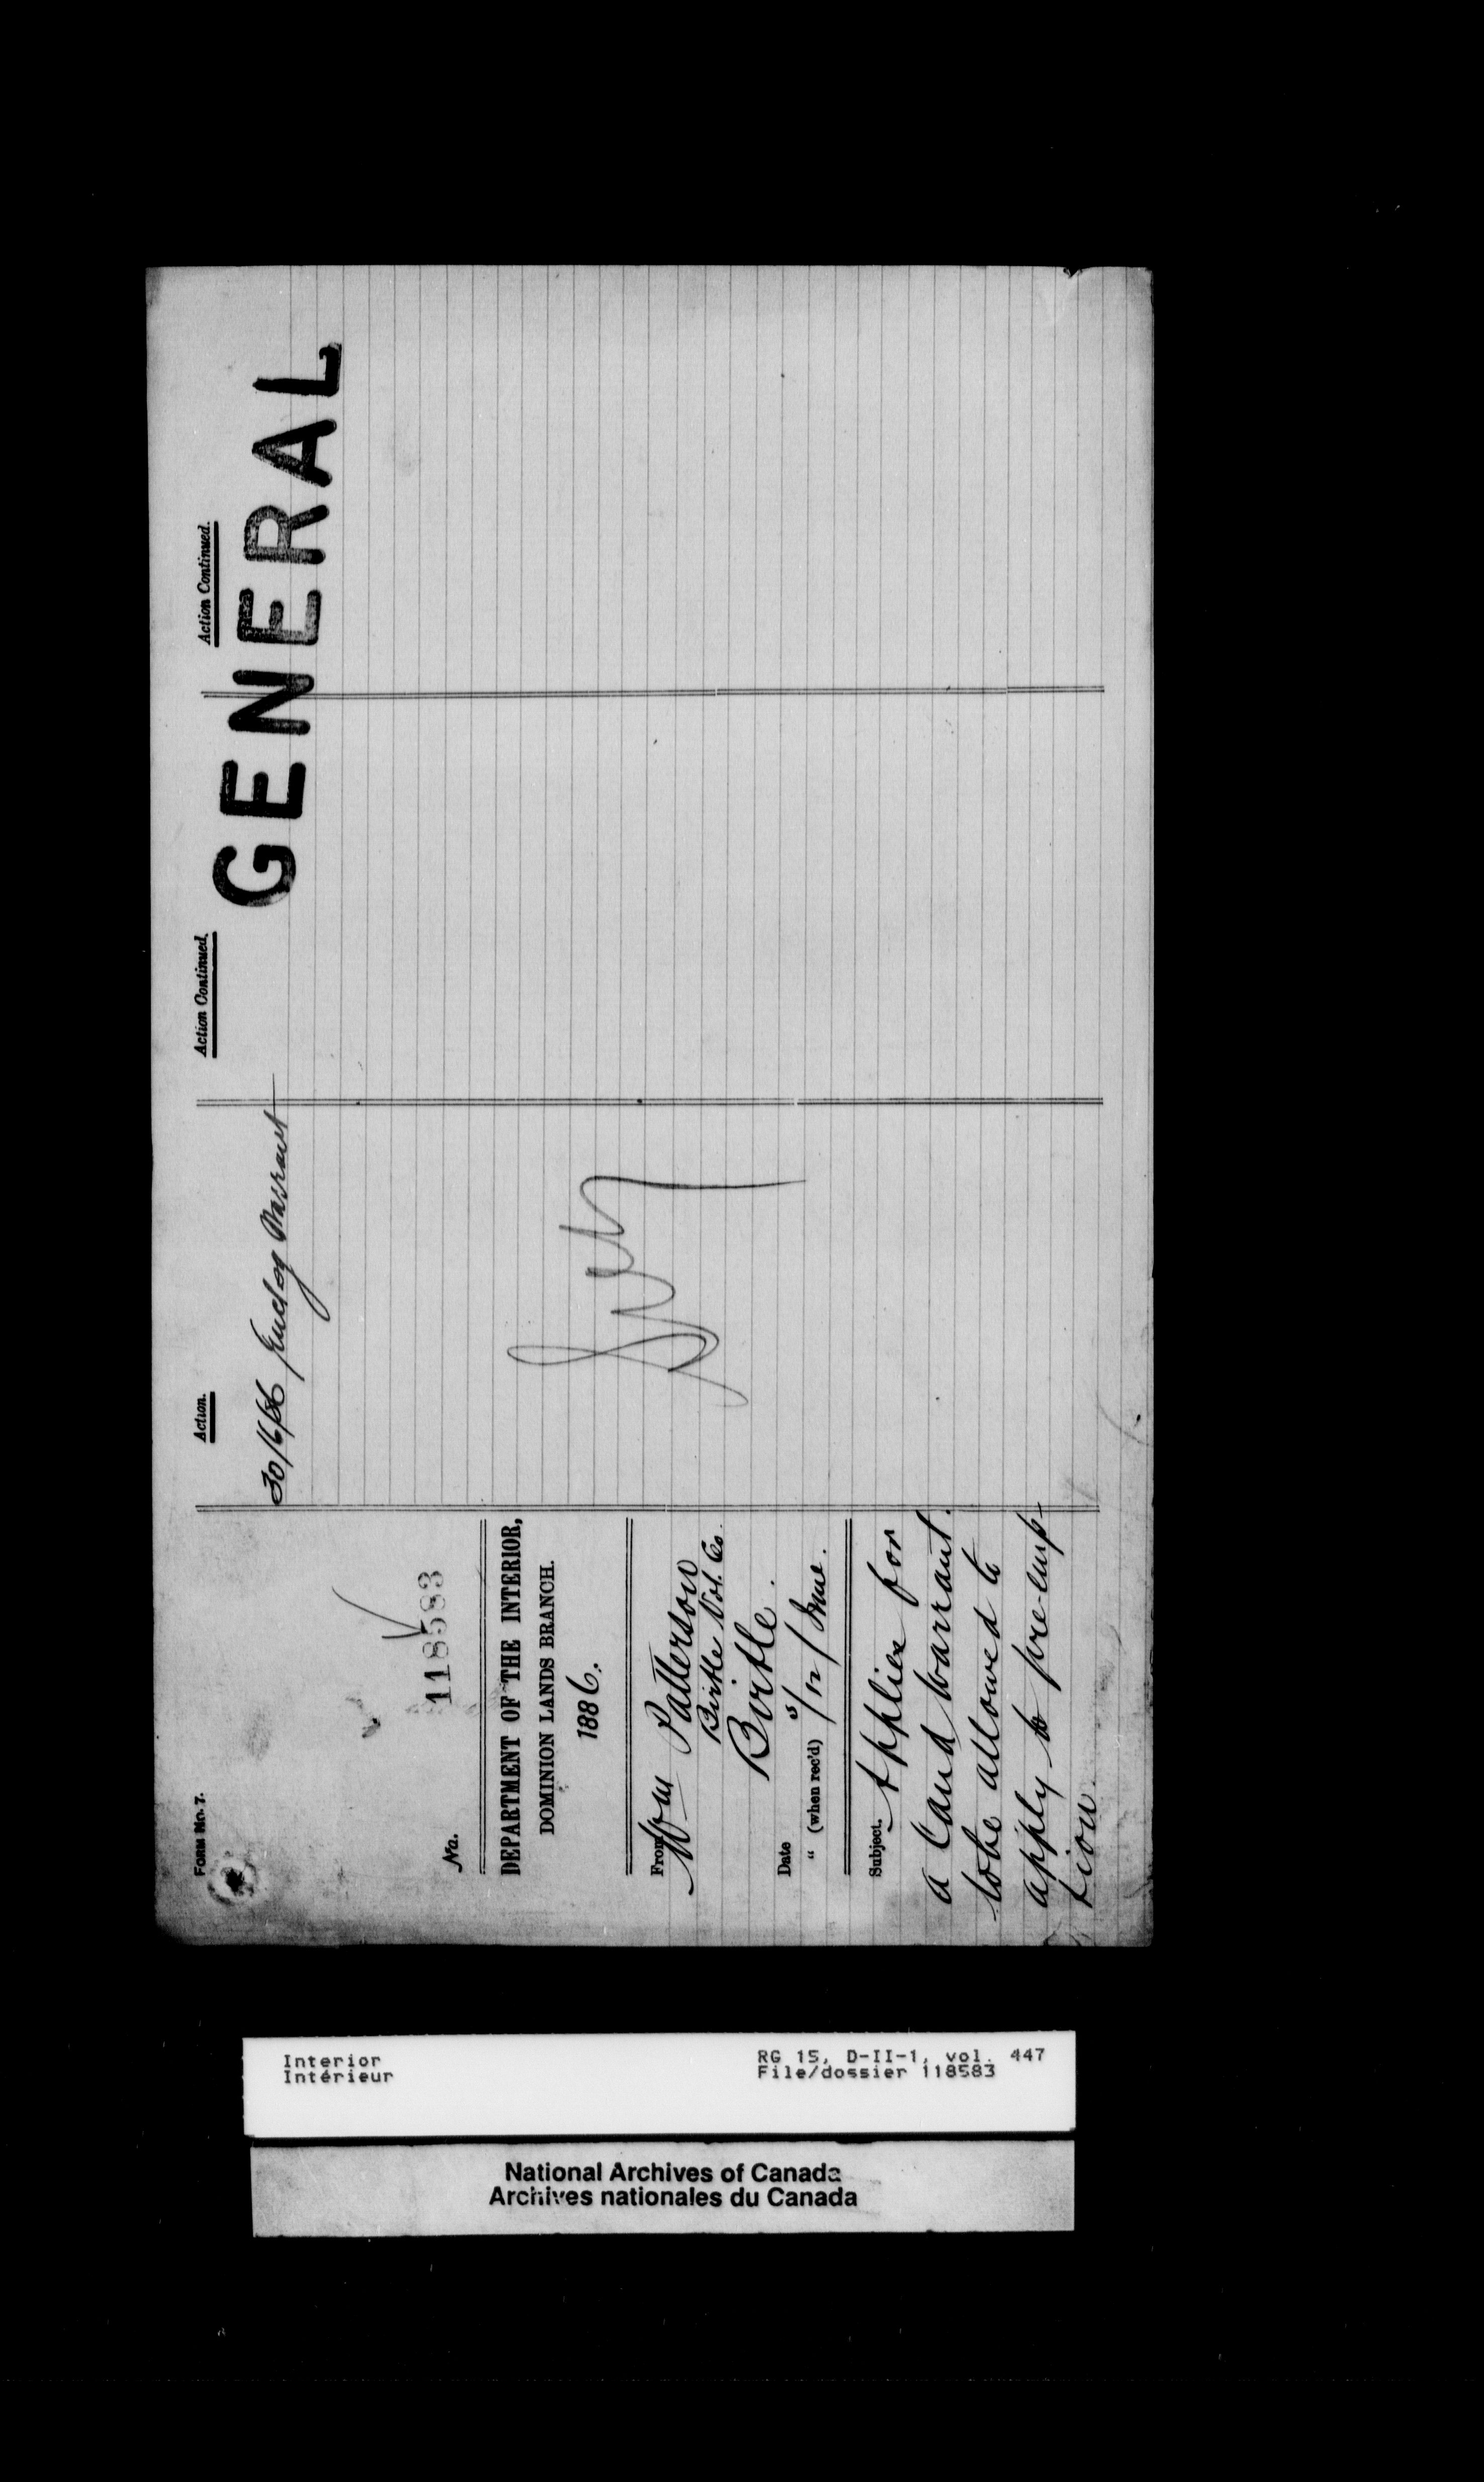 FORM No. 7.
No. 118583
DEPARTMENT OF THE INTERIOR,
DOMINION LANDS BRANCH.
1886.
From Wm Patterson
Birtle Vol. Co.
Birtle.
Date 5/
" (when rec'd) /12/ June.
Subject. Applies for
a Land Warrant.
to be allowed to
apply to pre-emp-
tion.
Action.
30/6/86 Warrant
Action Continued.
Action Continued.
GENERAL
Interior
Intérieur
RG 15, D-II-1, vol. 447
File/dossier 118583
National Archives of Canada
Archives nationales du Canada